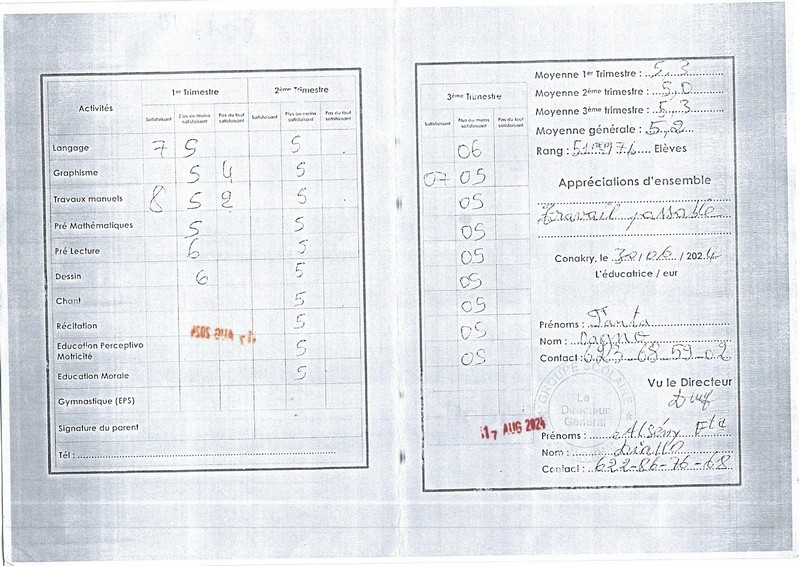 1er Trimestre 2ème Trimestre
Activités
Satisfaisant Plus ou moins satisfaisant Pas du tout satisfaisant Satisfaisant Plus ou moins satisfaisant Pas du tout satisfaisant
Langage 7 5 5
Graphisme 5 4 5
Travaux manuels 8 5 2 5
Pré Mathématiques 5 5
Pré Lecture 6 5
Dessin 6 5
Chant 5
Récitation 5
17 AUG 2024
Education Perceptivo Motricité 5
Education Morale 5
Gymnastique (EPS)
Signature du parent
Tél :
3ème Trimestre
Satisfaisant Plus ou moins satisfaisant Pas du tout satisfaisant
06
07 05
05
05
05
05
05
05
05
17 AUG 2024
Moyenne 1er Trimestre : 5,3
Moyenne 2ème trimestre : 5,0
Moyenne 3ème trimestre : 5,3
Moyenne générale : 5,2
Rang : 51 Elèves
Appréciations d'ensemble
Travail passable
Conakry, le 30/06/2024
L'éducatrice / eur
Prénoms : Fanta
Nom :
Contact : 623-68-59-02
GROUPE SCOLAIRE
Le Directeur Général
Vu le Directeur
Prénoms : Alsény Elh
Nom : Diallo
Contact : 622-86-76-68